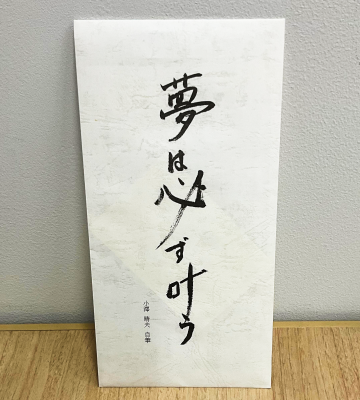 夢は必ず叶う
小澤 晴夫 自筆